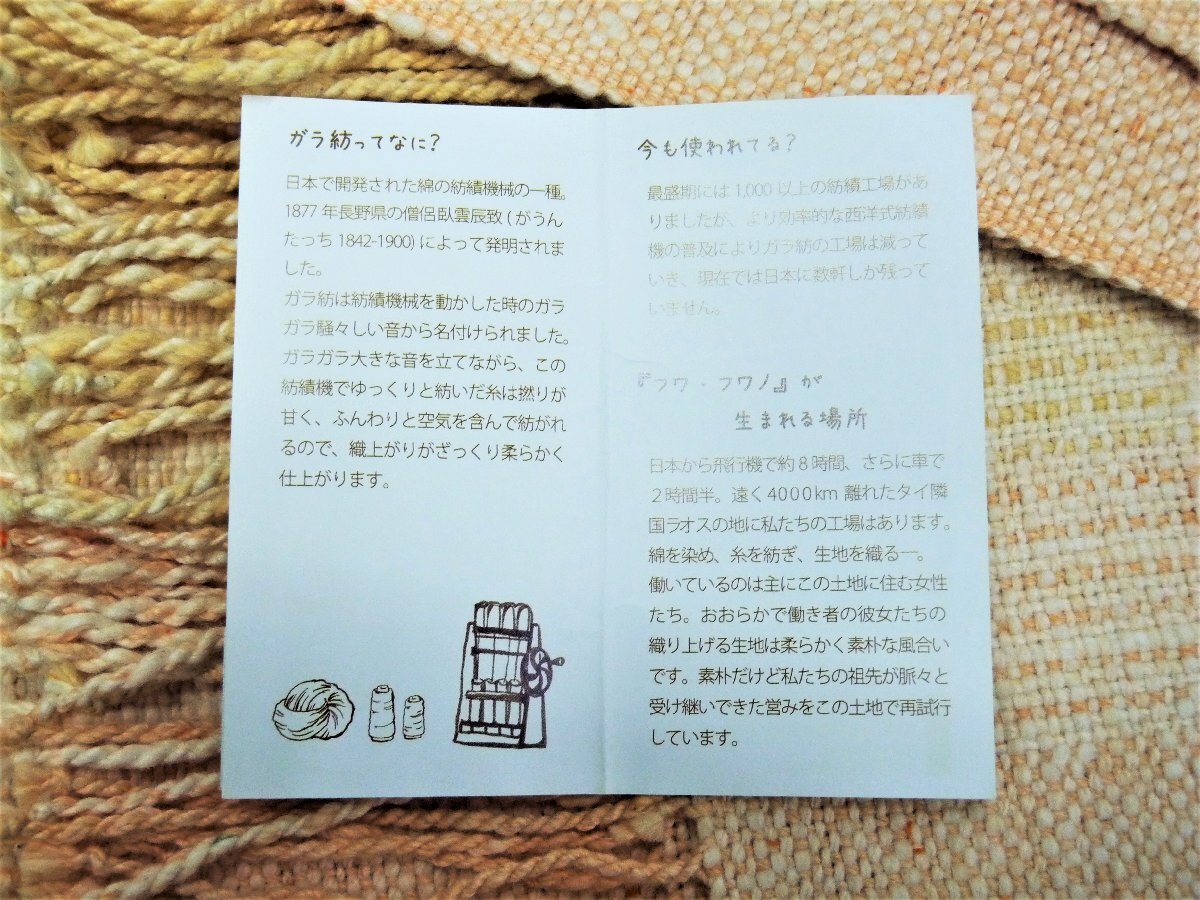 ガラ紡ってなに?
日本で開発された綿の紡績機械の一種。
1877年長野県の僧侶臥雲辰致(がうん
たっち 1842-1900)によって発明されま
した。
ガラ紡は紡績機械を動かした時のガラ
ガラ騒々しい音から名付けられました。
ガラガラ大きな音を立てながら、この
紡績機でゆっくりと紡いだ糸は撚りが
甘く、ふんわりと空気を含んで紡がれ
るので、織上がりがざっくり柔らかく
仕上がります。
今も使われてる?
最盛期には1,000以上の紡績工場があ
りましたが、より効率的な西洋式紡績
機の普及によりガラ紡の工場は減って
いき、現在では日本に数軒しか残って
いません。
『フワ・フワノ』が
生まれる場所
日本から飛行機で約8時間、さらに車で
2時間半。遠く4000km離れたタイ隣
国ラオスの地に私たちの工場はあります。
綿を染め、糸を紡ぎ、生地を織る―。
働いているのは主にこの土地に住む女性
たち。おおらかで働き者の彼女たちの
織り上げる生地は柔らかく素朴な風合い
です。素朴だけど私たちの祖先が脈々と
受け継いできた営みをこの土地で再試行
しています。